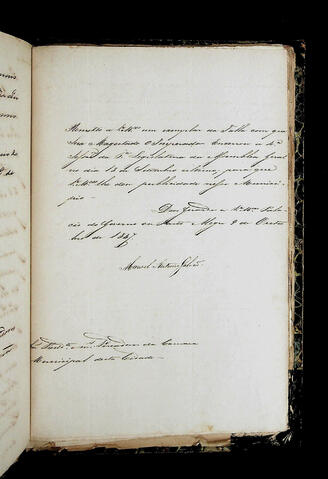 Remetto a V.Mces um exemplar da Falla com que
Sua Magestade O Imperador encerrou a 4ª
Sessão da Legislatura da Assembléa Geral
no dia de Setembro ultimo, para que
V.Mces lhe dem publicidade nesse Munici-
pio.
Deos Guarde a V.Mces Pala-
cio do Governo em Porto Alegre 9 de Outu-
bro de 1847
Manoel Antonio Galvão
Srs. Presid.e e Vereadores da Camara
Municipal desta Cidade.